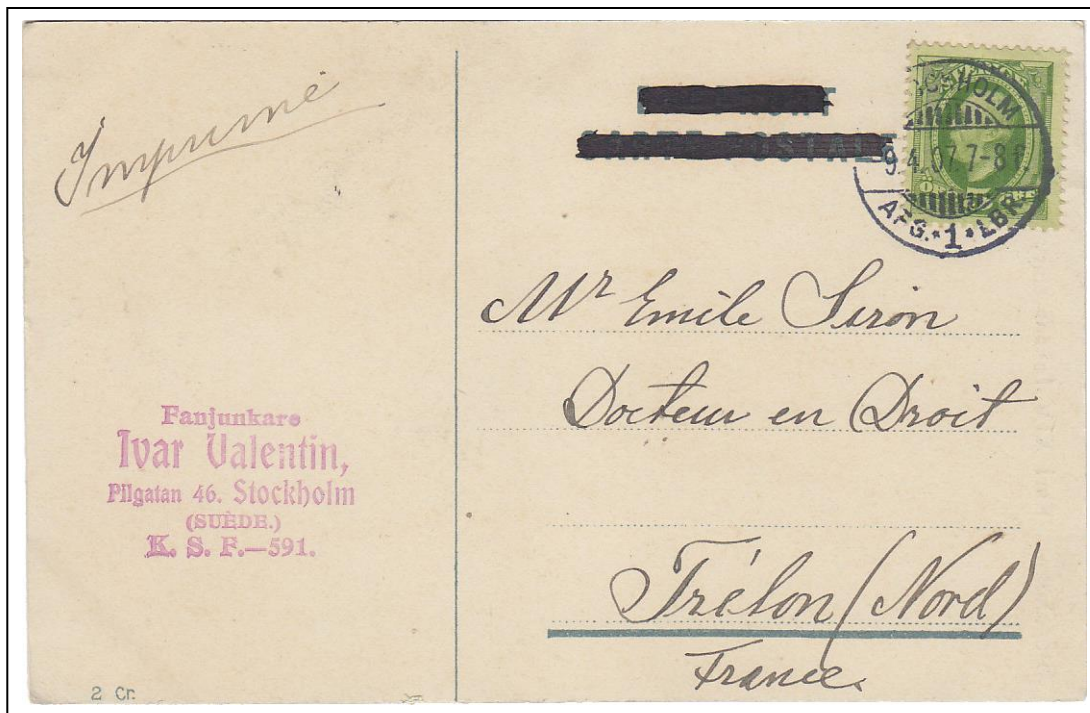 Imprimé
CARTE POSTALE
STOCKHOLM
9.4.07.7-8 F
AFG.*1*LBR.
Mr Emile Siron
Docteur en Droit
Trélon (Nord)
France.
Fanjunkare
Ivar Valentin,
Pilgatan 46. Stockholm
(SUÈDE.)
K. S. F.—591.
2 Cr.